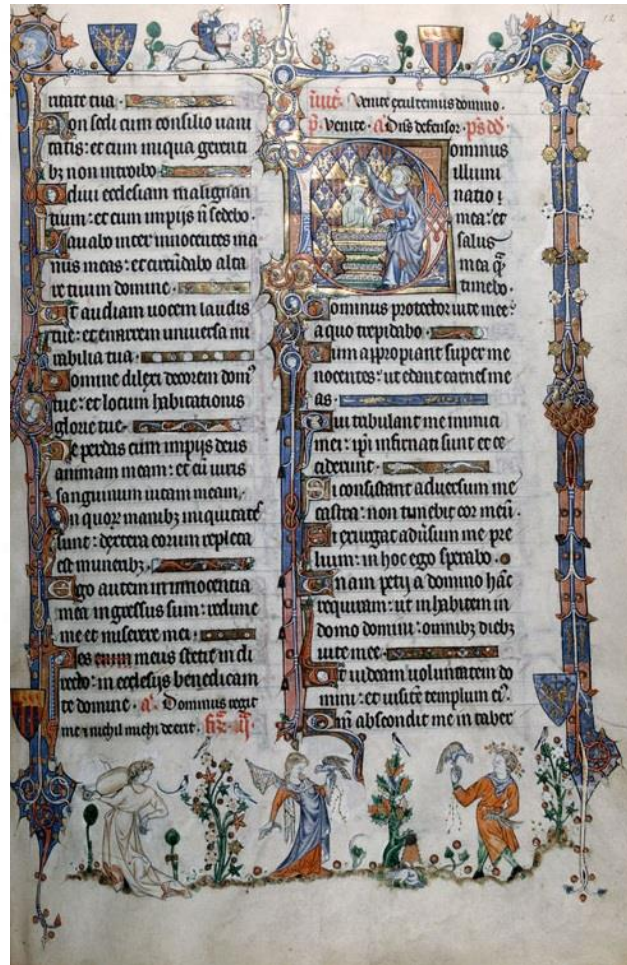 ritate tua.
Non sedi cum consilio uani
tatis: et cum iniqua gerenti
bȝ non introibo.
Odiui ecclesiam malignan
tium: et cum impijs ñ sedebo.
Lauabo inter innocentes ma
nus meas: et circũdabo alta
re tuum domine.
Ut audiam uocem laudis
tue: et enarrem uniuersa mi
rabilia tua.
Domine dilexi decorem dom⁹
tue: et locum habitationis
glorie tue.
Ne perdas cum impijs deus
animam meam: et cũ uiris
sanguinum uitam meam.
In quoꝝ manibȝ iniquitates
sunt: dextera eorum repleta
est muneribȝ.
Ego autem in innocentia
mea ingressus sum: redime
me et miserere mei.
Pes enim meus stetit in di
recto: in ecclesijs benedicam
te domine. a. Dominus regit
me nichil michi deerit.
12
Venite exultemus domino.
p̃. Venite. a. Dñs defensor. p̃s dd̃
Dominus
illumi
natio
mea: et
salus
mea q̃
timebo.
Dominus protector uite mee:
a quo trepidabo.
Dum appropiant super me
nocentes: ut edant carnes me
as.
Qui tribulant me inimici
mei: ip̃i infirmati sunt et ce
ciderunt.
Si consistant aduersum me
castra: non timebit cor meũ.
Si exurgat aduͥsum me pre
lium: in hoc ego sperabo.
Unam petij a domino hãc
requiram: ut inhabitem in
domo domini: omnibȝ diebȝ
uite mee.
Ut uideam uoluntatem do
mini: et uisitẽ templum ei⁹.
Qm̃ abscondit me in taber